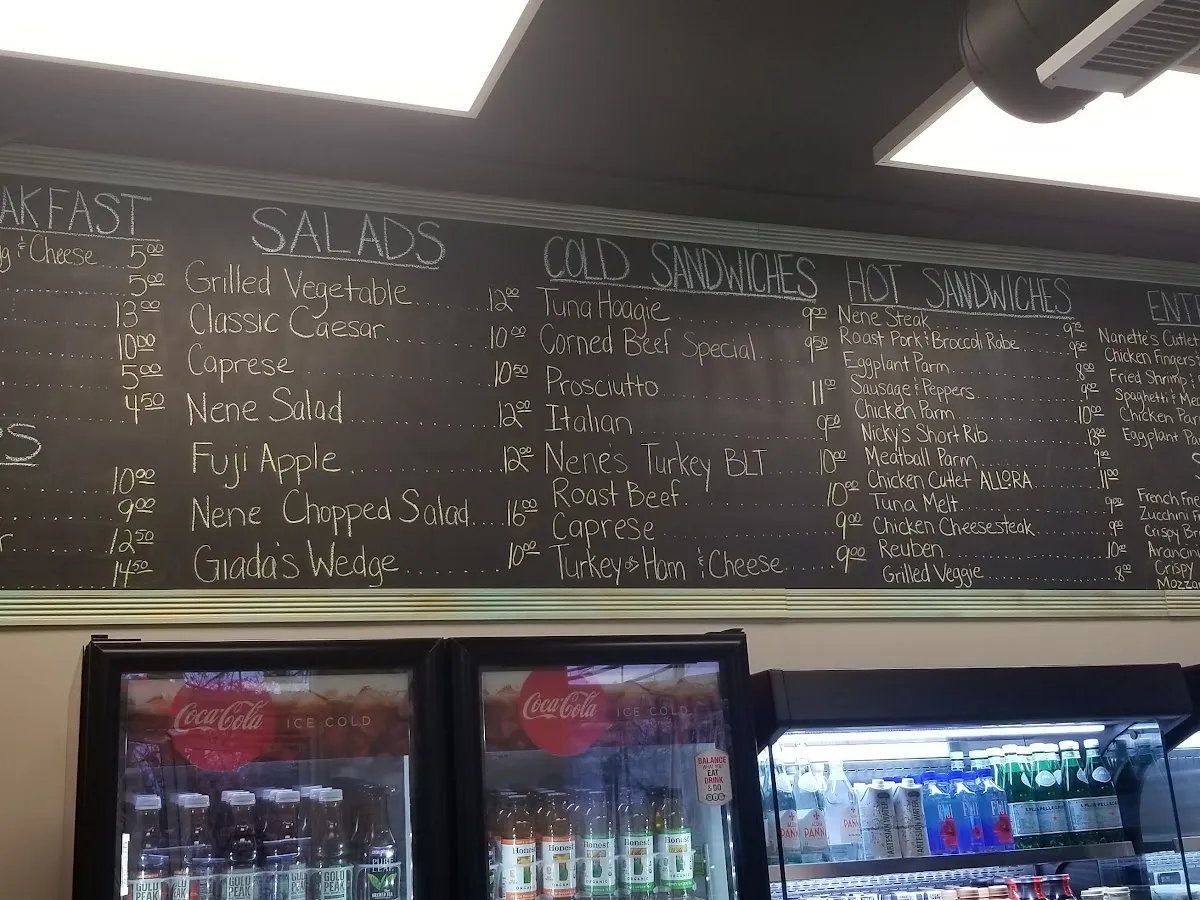 AKFAST
g & Cheese 5.00
5.00
13.00
10.00
5.00
4.50
10.00
9.00
12.50
14.50
SALADS
Grilled Vegetable 12.00
Classic Caesar 10.00
Caprese 10.50
Nene Salad 12.00
Fuji Apple 12.00
Nene Chopped Salad 16.00
Giada's Wedge 10.00
COLD SANDWICHES
Tuna Hoagie 9.00
Corned Beef Special 9.50
Prosciutto 11.00
Italian 9.50
Nene's Turkey BLT 10.00
Roast Beef 10.00
Caprese 9.00
Turkey or Ham & Cheese 9.00
HOT SANDWICHES
Nene Steak 9.00
Roast Pork & Broccoli Rabe 9.50
Eggplant Parm 8.00
Sausage & Peppers 9.00
Chicken Parm 10.00
Nicky's Short Rib 13.00
Meatball Parm 9.00
Chicken Cutlet ALLORA 11.00
Tuna Melt 9.00
Chicken Cheesesteak 9.00
Reuben 10.00
Grilled Veggie 8.00
ENT
Nanette's Cutlet
Chicken Fingers
Fried Shrimp
Spaghetti & Me
Chicken Par
Eggplant Pa
French Frie
Zucchini F
Crispy Br
Arancin
Crispy
Mozza
Coca-Cola ICE COLD
Coca-Cola ICE COLD
BALANCE
WHAT YOU
EAT
DRINK
& DO
GOLD PEAK
GOLD PEAK
GOLD PEAK
PURE LEAF
Honest
Honest
Honest
Honest
Honest
PANN
PANNA
ARTESIAN WATER
S.PELLEGRINO